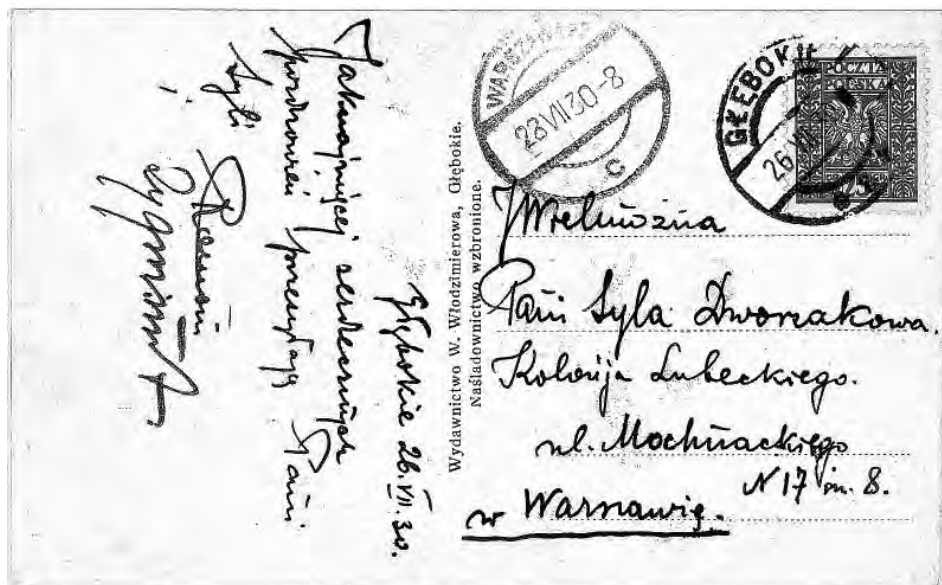 Głębokie 26.VII.30.
Jaknajwięcej serdecznych
pozdrowień przesyłają Pani
Syli
i
Wydawnictwo W. Włodzimierowa, Głębokie.
Naśladownictwo wzbronione.
WARSZAWA
28 VII 30-8
C
GŁĘBOKIE
26 VII
POCZTA
POLSKA
25
JWielmożna
Pani Syla Dworzakowa.
Kolonja Lubeckiego.
ul. Mochnackiego
N 17 m. 8.
w Warszawie.